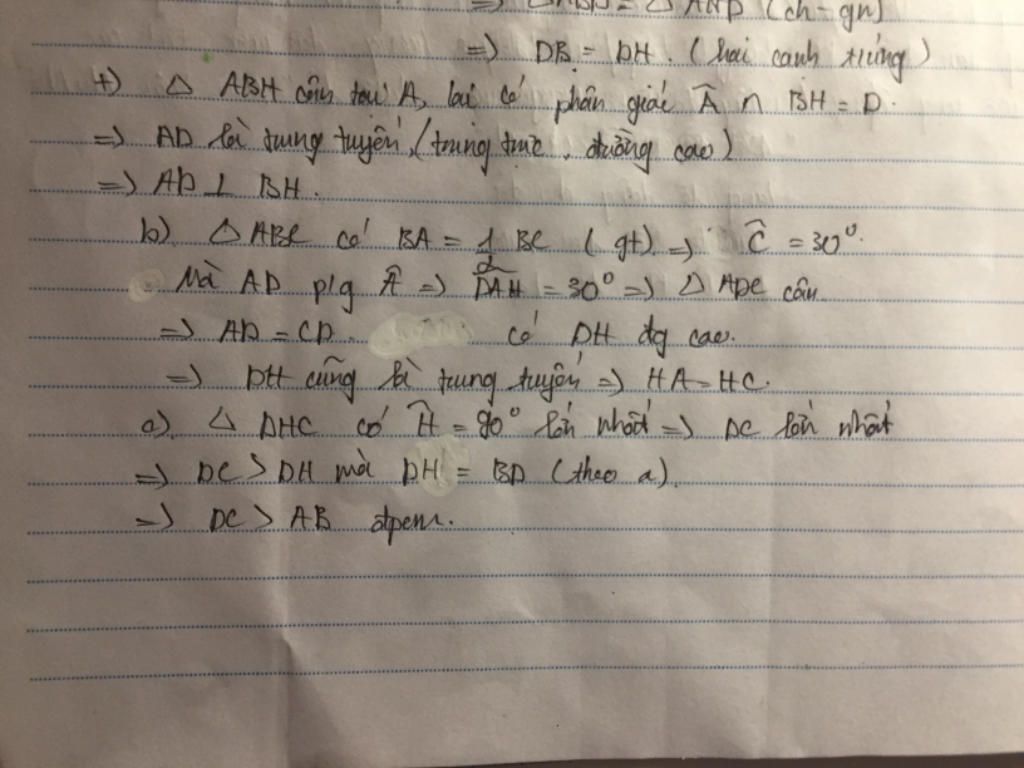 => △ ABD = △ AHD (ch - gn)
=> DB = DH. (hai cạnh tương ứng)
+) △ ABH cân tại A, lại có phân giác Â ∩ BH = D.
=> AD là trung tuyến, (trung trực, đường cao)
=> AD ⊥ BH.
b) △ ABC có BA = 1/2 BC (gt) => Ĉ = 30°.
Mà AD p/g Â => DAH = 30° => △ ADC cân
=> AD = CD. có DH đg cao.
=> DH cũng là trung tuyến => HA = HC.
a) △ DHC có Ĥ = 90° lớn nhất => DC lớn nhất
=> DC > DH mà DH = BD (theo a).
=> DC > AB đpcm.